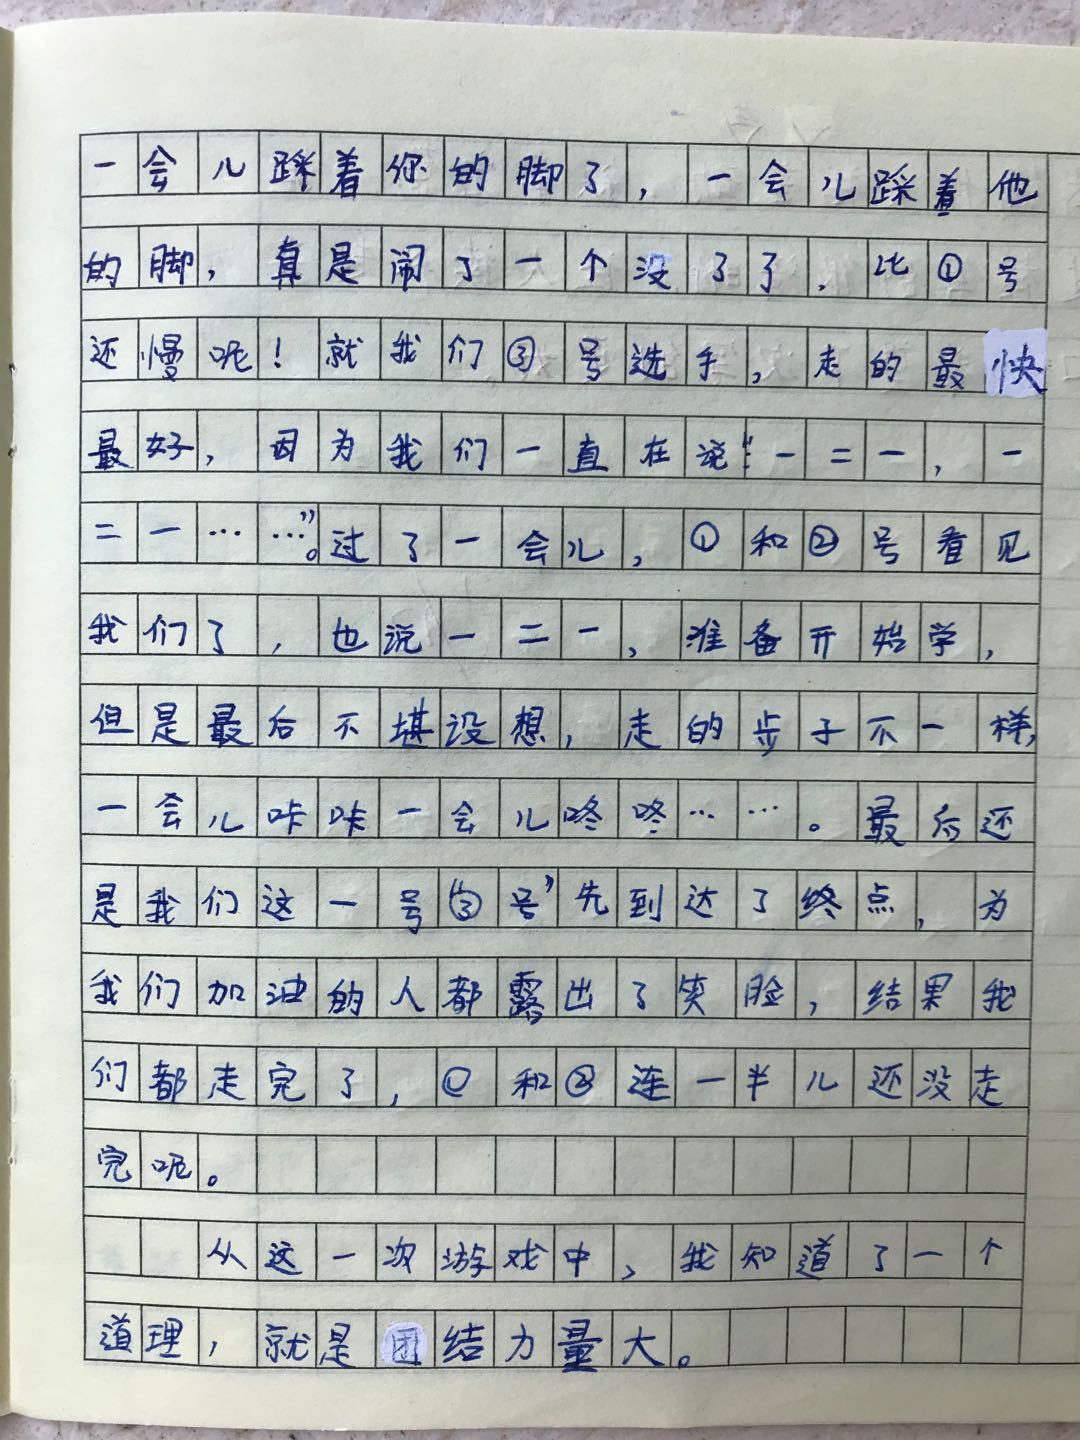 一会儿踩着你的脚了，一会儿踩着他
的脚，真是闹了一个没了了，比①号
还慢呢！就我们③号选手，走的最快
最好，因为我们一直在说：“一二一，一
二一……”。过了一会儿，①和②号看见
我们了，也说一二一，准备开始学，
但是最后不堪设想，走的步子不一样，
一会儿咔咔一会儿咚咚……。最后还
是我们这一号“③号”先到达了终点，为
我们加油的人都露出了笑脸，结果我
们都走完了，①和②连一半儿还没走
完呢。
从这一次游戏中，我知道了一个
道理，就是团结力量大。